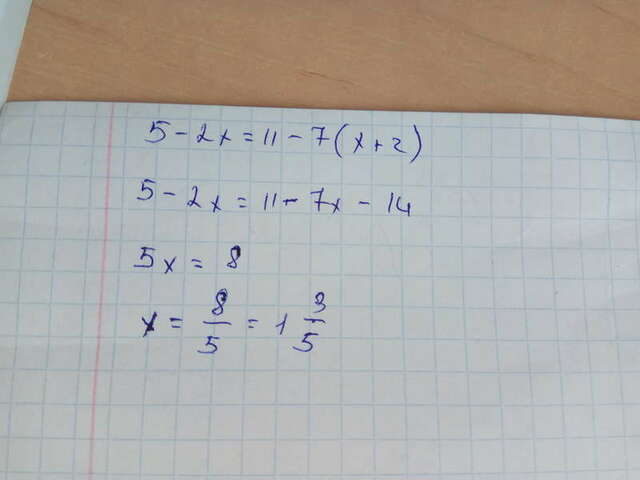 5 - 2x = 11 - 7(x + 2)
5 - 2x = 11 - 7x - 14
5x = 8
x = 8/5 = 1 3/5